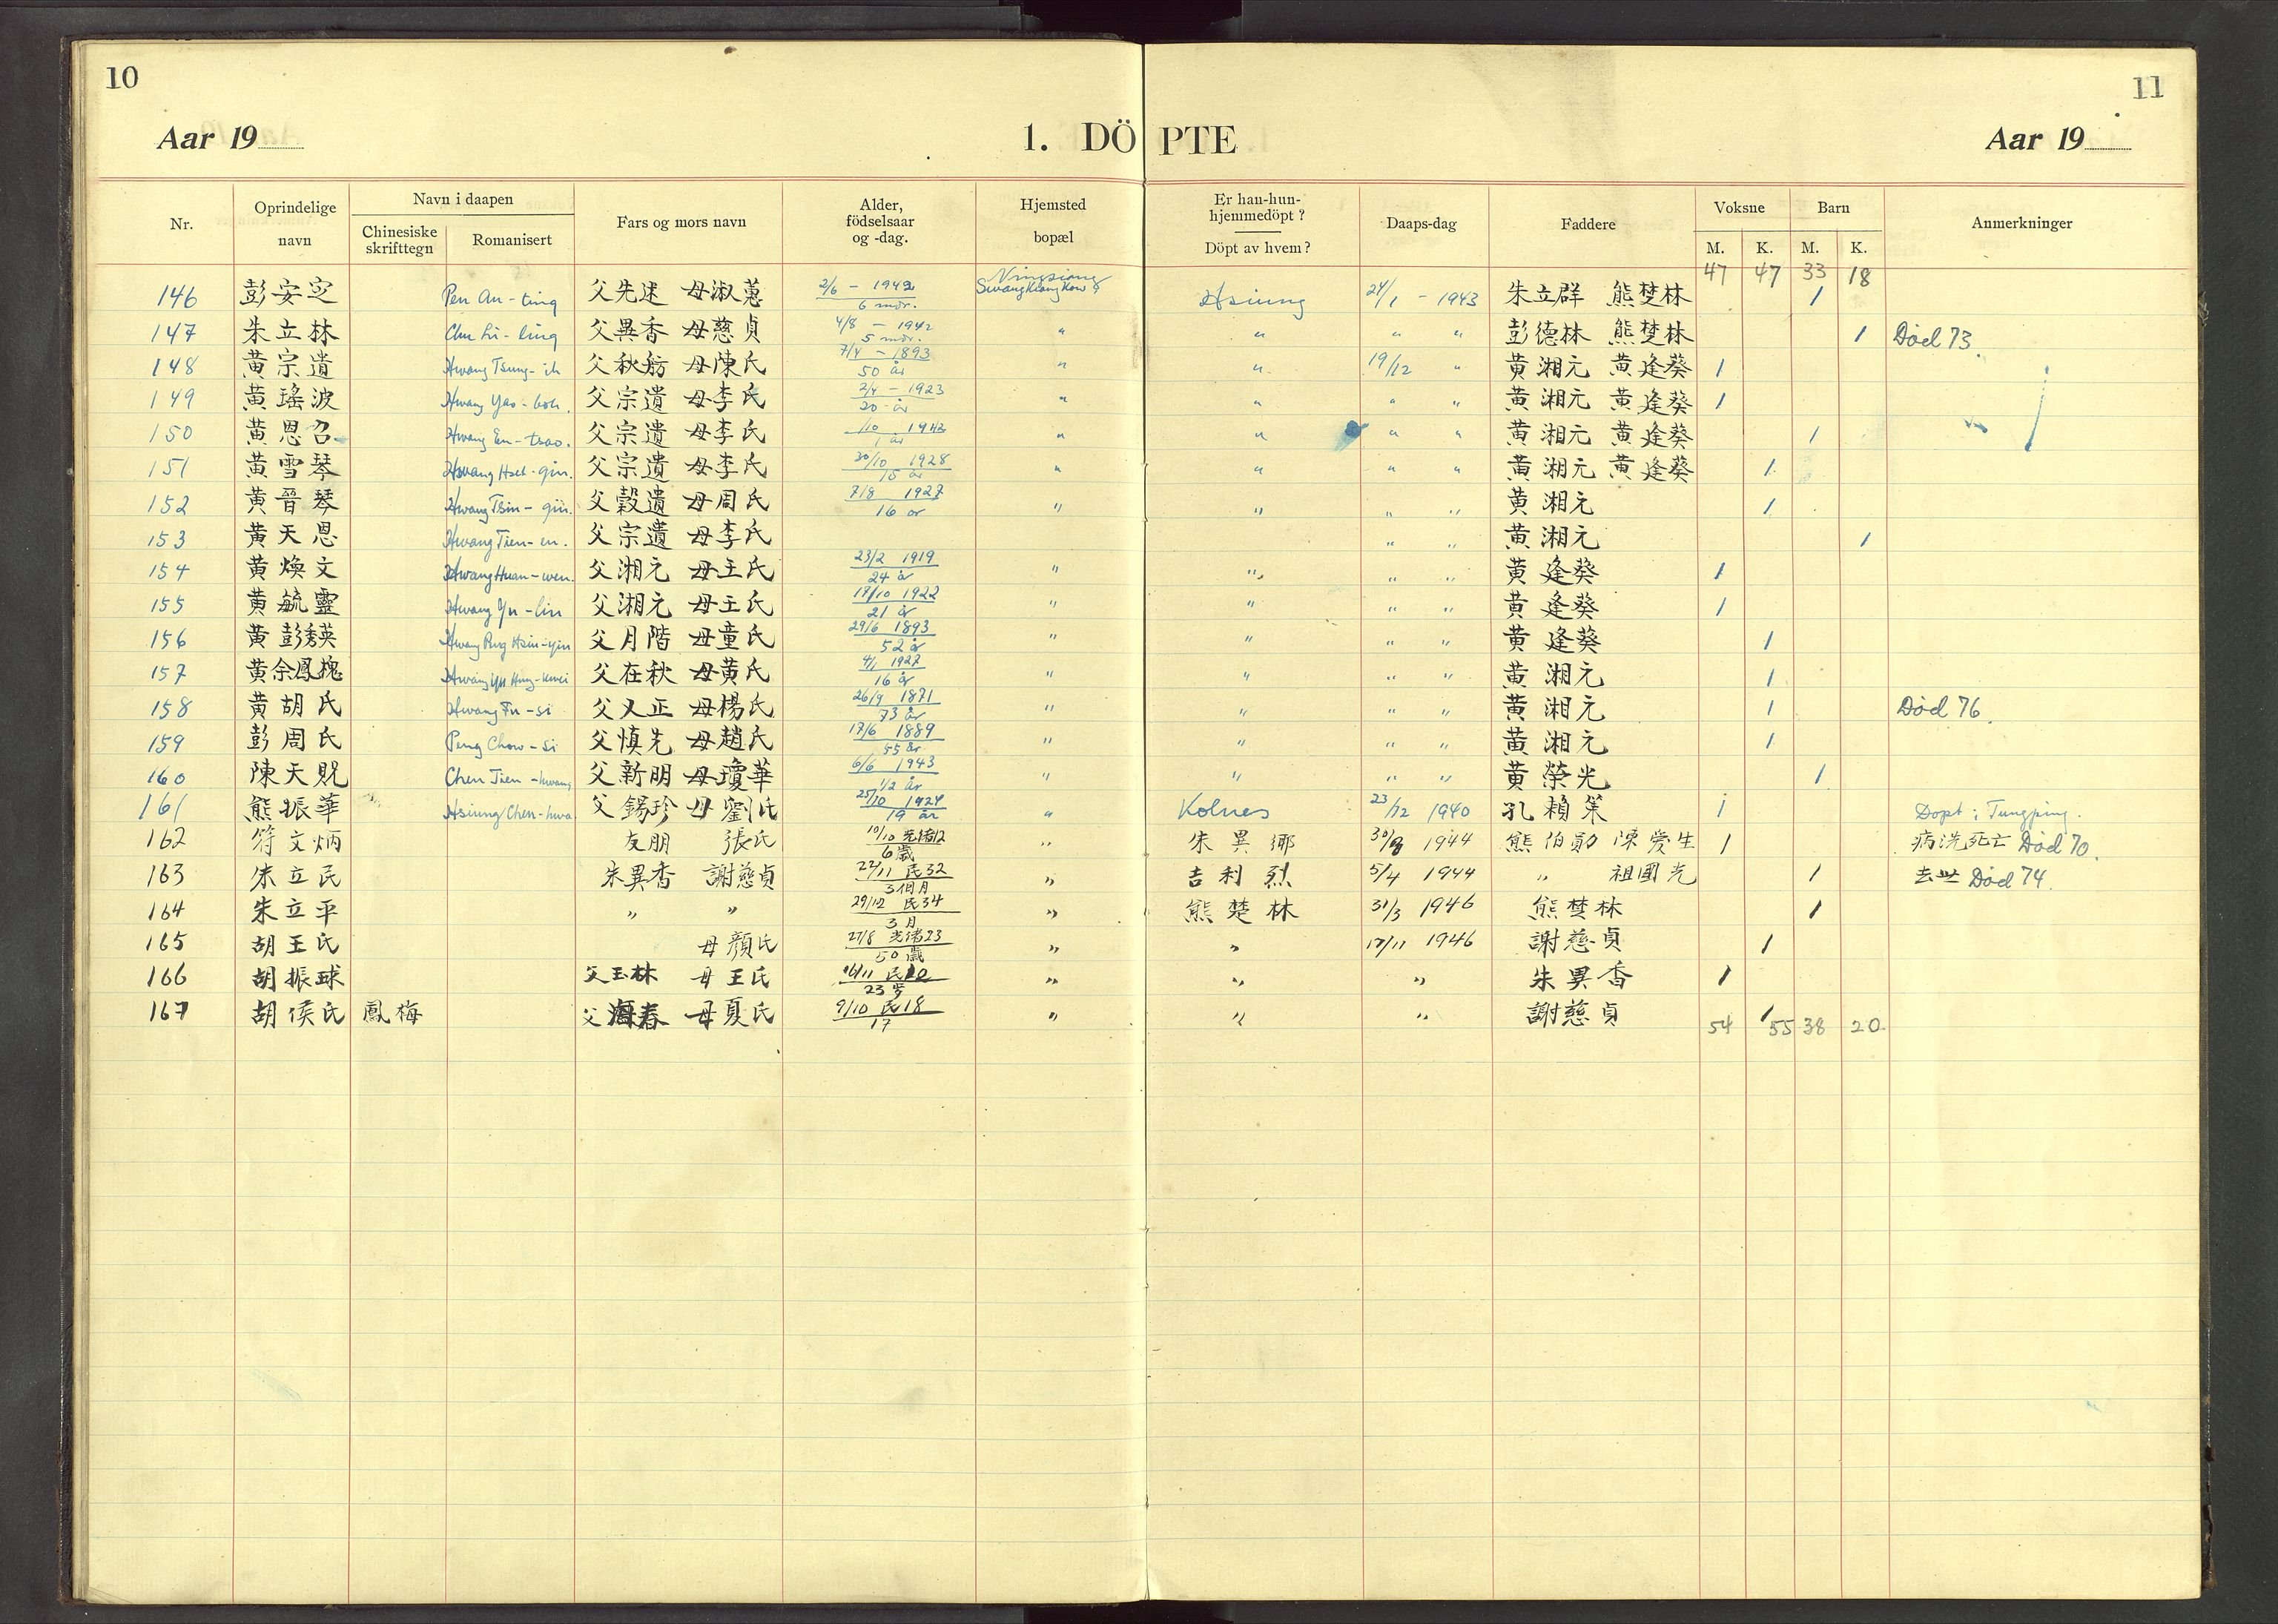 10
11
Aar 19
1. DÖPTE
Aar 19
Nr.
Oprindelige navn
Navn i daapen
Chinesiske skrifttegn
Romanisert
Fars og mors navn
Alder, födselsaar og -dag.
Hjemsted bopæl
Er han-hun-hjemmedöpt?
Döpt av hvem?
Daaps-dag
Faddere
Voksne
Barn
M. K. M. K.
Anmerkninger
47 47 33 18
146 彭安定 Pen An-ting 父先述 母淑蕙 2/6 - 1942 6 mdr. Ningsiang Hsiung 24/1 - 1943 朱立群 熊楚林 1
147 朱立林 Chu Li-ling 父異香 母慈貞 4/8 - 1942 5 mdr. " " " " 彭德林 熊楚林 1 Død 73.
148 黄宗遺 Hwang Tsung-ih 父秋舫 母陳氏 7/4 - 1893 50 år " " 19/12 " 黄湘元 黄逢葵 1
149 黄瑤波 Hwang Yao-boh. 父宗遺 母李氏 2/4 - 1923 20 år " " " " 黄湘元 黄逢葵 1
150 黄恩召 Hwang En-tsao. 父宗遺 母李氏 /10 1942 1 år " " " " 黄湘元 黄逢葵 1
151 黄雪琴 Hwang Hset-qin. 父宗遺 母李氏 20/10 1928 15 år " " " " 黄湘元 黄逢葵 1
152 黄晉琴 Hwang Tsin-qin. 父穀遺 母周氏 7/8 1927 16 år " " " " 黄湘元 1
153 黄天恩 Hwang Tien-en. 父宗遺 母李氏 " " 黄湘元 1
154 黄煥文 Hwang Huan-wen. 父湘元 母王氏 23/2 1919 24 år " " " " 黄逢葵 1
155 黄毓靈 Hwang Yu-lin 父湘元 母王氏 17/10 1922 21 år " " " " 黄逢葵 1
156 黄彭秀英 Hwang Peng Hsiu-yin 父月階 母童氏 29/6 1893 52 år " " " " 黄逢葵 1
157 黄余鳳槐 Hwang Yu Hung-kwei 父在秋 母黄氏 4/1 1927 16 år " " " " 黄湘元 1
158 黄胡氏 Hwang Fu-si 父又正 母楊氏 26/9 1871 73 år " " " " 黄湘元 1 Død 76.
159 彭周氏 Peng Chow-si 父慎先 母趙氏 17/6 1889 55 år " " " " 黄湘元 1
160 陳天貺 Chen Tien-kwang 父新明 母瓊華 6/6 1943 1/2 år " " " " 黄榮光 1
161 熊振華 Hsiung Chen-hwa 父錫珍 母劉氏 25/10 1924 19 år " Kolnes 23/12 1940 孔賴策 1 Døpt i Tungping.
162 符文炳 友朋 張氏 10/10 光緒12 6 歲 " 朱異鄉 30/8 1944 熊伯勛 陳愛生 1 病洗死亡 Død 70.
163 朱立民 朱異香 謝慈貞 22/11 民32 3個月 " 吉利烈 5/4 1944 " 祖國光 1 去世 Død 74.
164 朱立平 " " 29/12 民34 3月 " 熊楚林 31/3 1946 熊楚林 1
165 胡王氏 母顏氏 27/8 光緒23 50歲 " " 17/11 1946 謝慈貞 1
166 胡振球 父玉林 母王氏 16/11 民 23岁 " " " 朱異香 1
167 胡侯氏 鳳梅 父海春 母夏氏 9/10 民18 17 " " " 謝慈貞 1
54 55 38 20